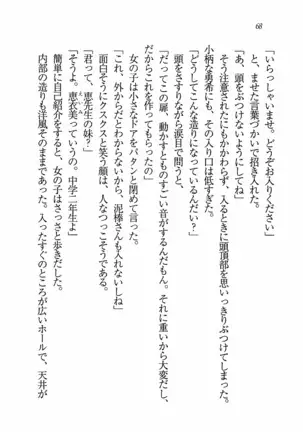 68
「いらっしゃいませ。どうぞお入りください」
と、ませた言葉づかいで招き入れた。
「あ、頭をぶつけないようにしてね」
そう注意されたにもかかわらず、入るときに頭頂部を思いっきりぶつけてしまった。
小柄な勇希にも、その入り口は低すぎた。
「どうしてこんな造りになっているんだい?」
頭をさすりながら涙目で問うと、
「だってこの扉、動かすとものすごい音がするんだもん。それに重いから大変だし、
だからこれを作ってもらったの」
女の子は小さなドアをバタンと閉めて言った。
「これ、外からだとわからないし、泥棒さんも入れないしね」
面白そうにクスクスと笑う顔は、人なつっこそうである。
「君って、恵先生の妹?」
「そうよ。恵衣美っていうの。中学二年生よ」
簡単に自己紹介をすると、女の子はさっさと歩きだした。
内部の造りも洋風そのままであった。入ったすぐのところが広いホールで、天井が